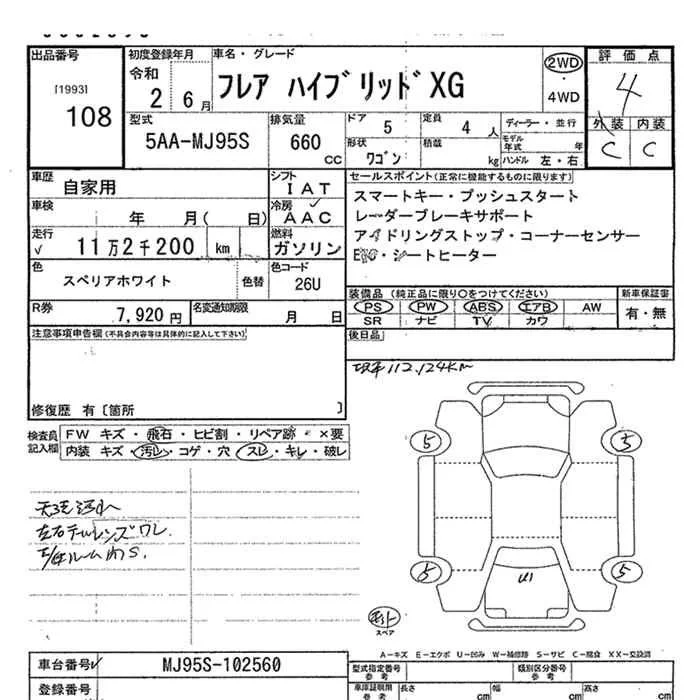 出品番号 初度登録年月 車名・グレード 評価点
[1993] 108
令和 2 6月
フレア ハイブリッド XG
2WD
4WD
4
外装 内装
C C
型式 排気量 ドア 5 定員 4 人 ディーラー・並行
5AA-MJ95S 660 CC
形状 ワゴン 積載 kg モデル年式 年
ハンドル 左・右
車歴 自家用 シフト IAT
セールスポイント(正常に機能するものに限ります)
車検 年 月( 日) 冷房 AAC
スマートキー・プッシュスタート
レーダーブレーキサポート
走行 √ 11万2千200 km 燃料 ガソリン
アイドリングストップ・コーナーセンサー
・シートヒーター
色 スペリアホワイト 色替 色コード 26U
装備品 (純正品に限り○をつけてください) 新車保証書
PS PW ABS エアB AW 有・無
SR ナビ TV カワ
R券 7,920円 名変通知期限 月 日
注意事項申告欄(不具合内容等は具体的に記入して下さい) 後日品
112,124KM
修復歴 有〔箇所 〕
検査員記入欄 FW キズ・飛石・ヒビ割・リペア跡・×要
内装 キズ・汚レ・コゲ・穴・スレ・キレ・破レ
5 5
左右テールレンズワレ
5 5
スペア
A-キズ E-エクボ U-凹み W-補修跡 S-サビ C-腐食 XX-交換済
車台番号 √ MJ95S-102560
型式指定番号 参考 類別区分番号 参考
登録番号
車庫証明用 参考 長さ cm 幅 cm 高さ cm